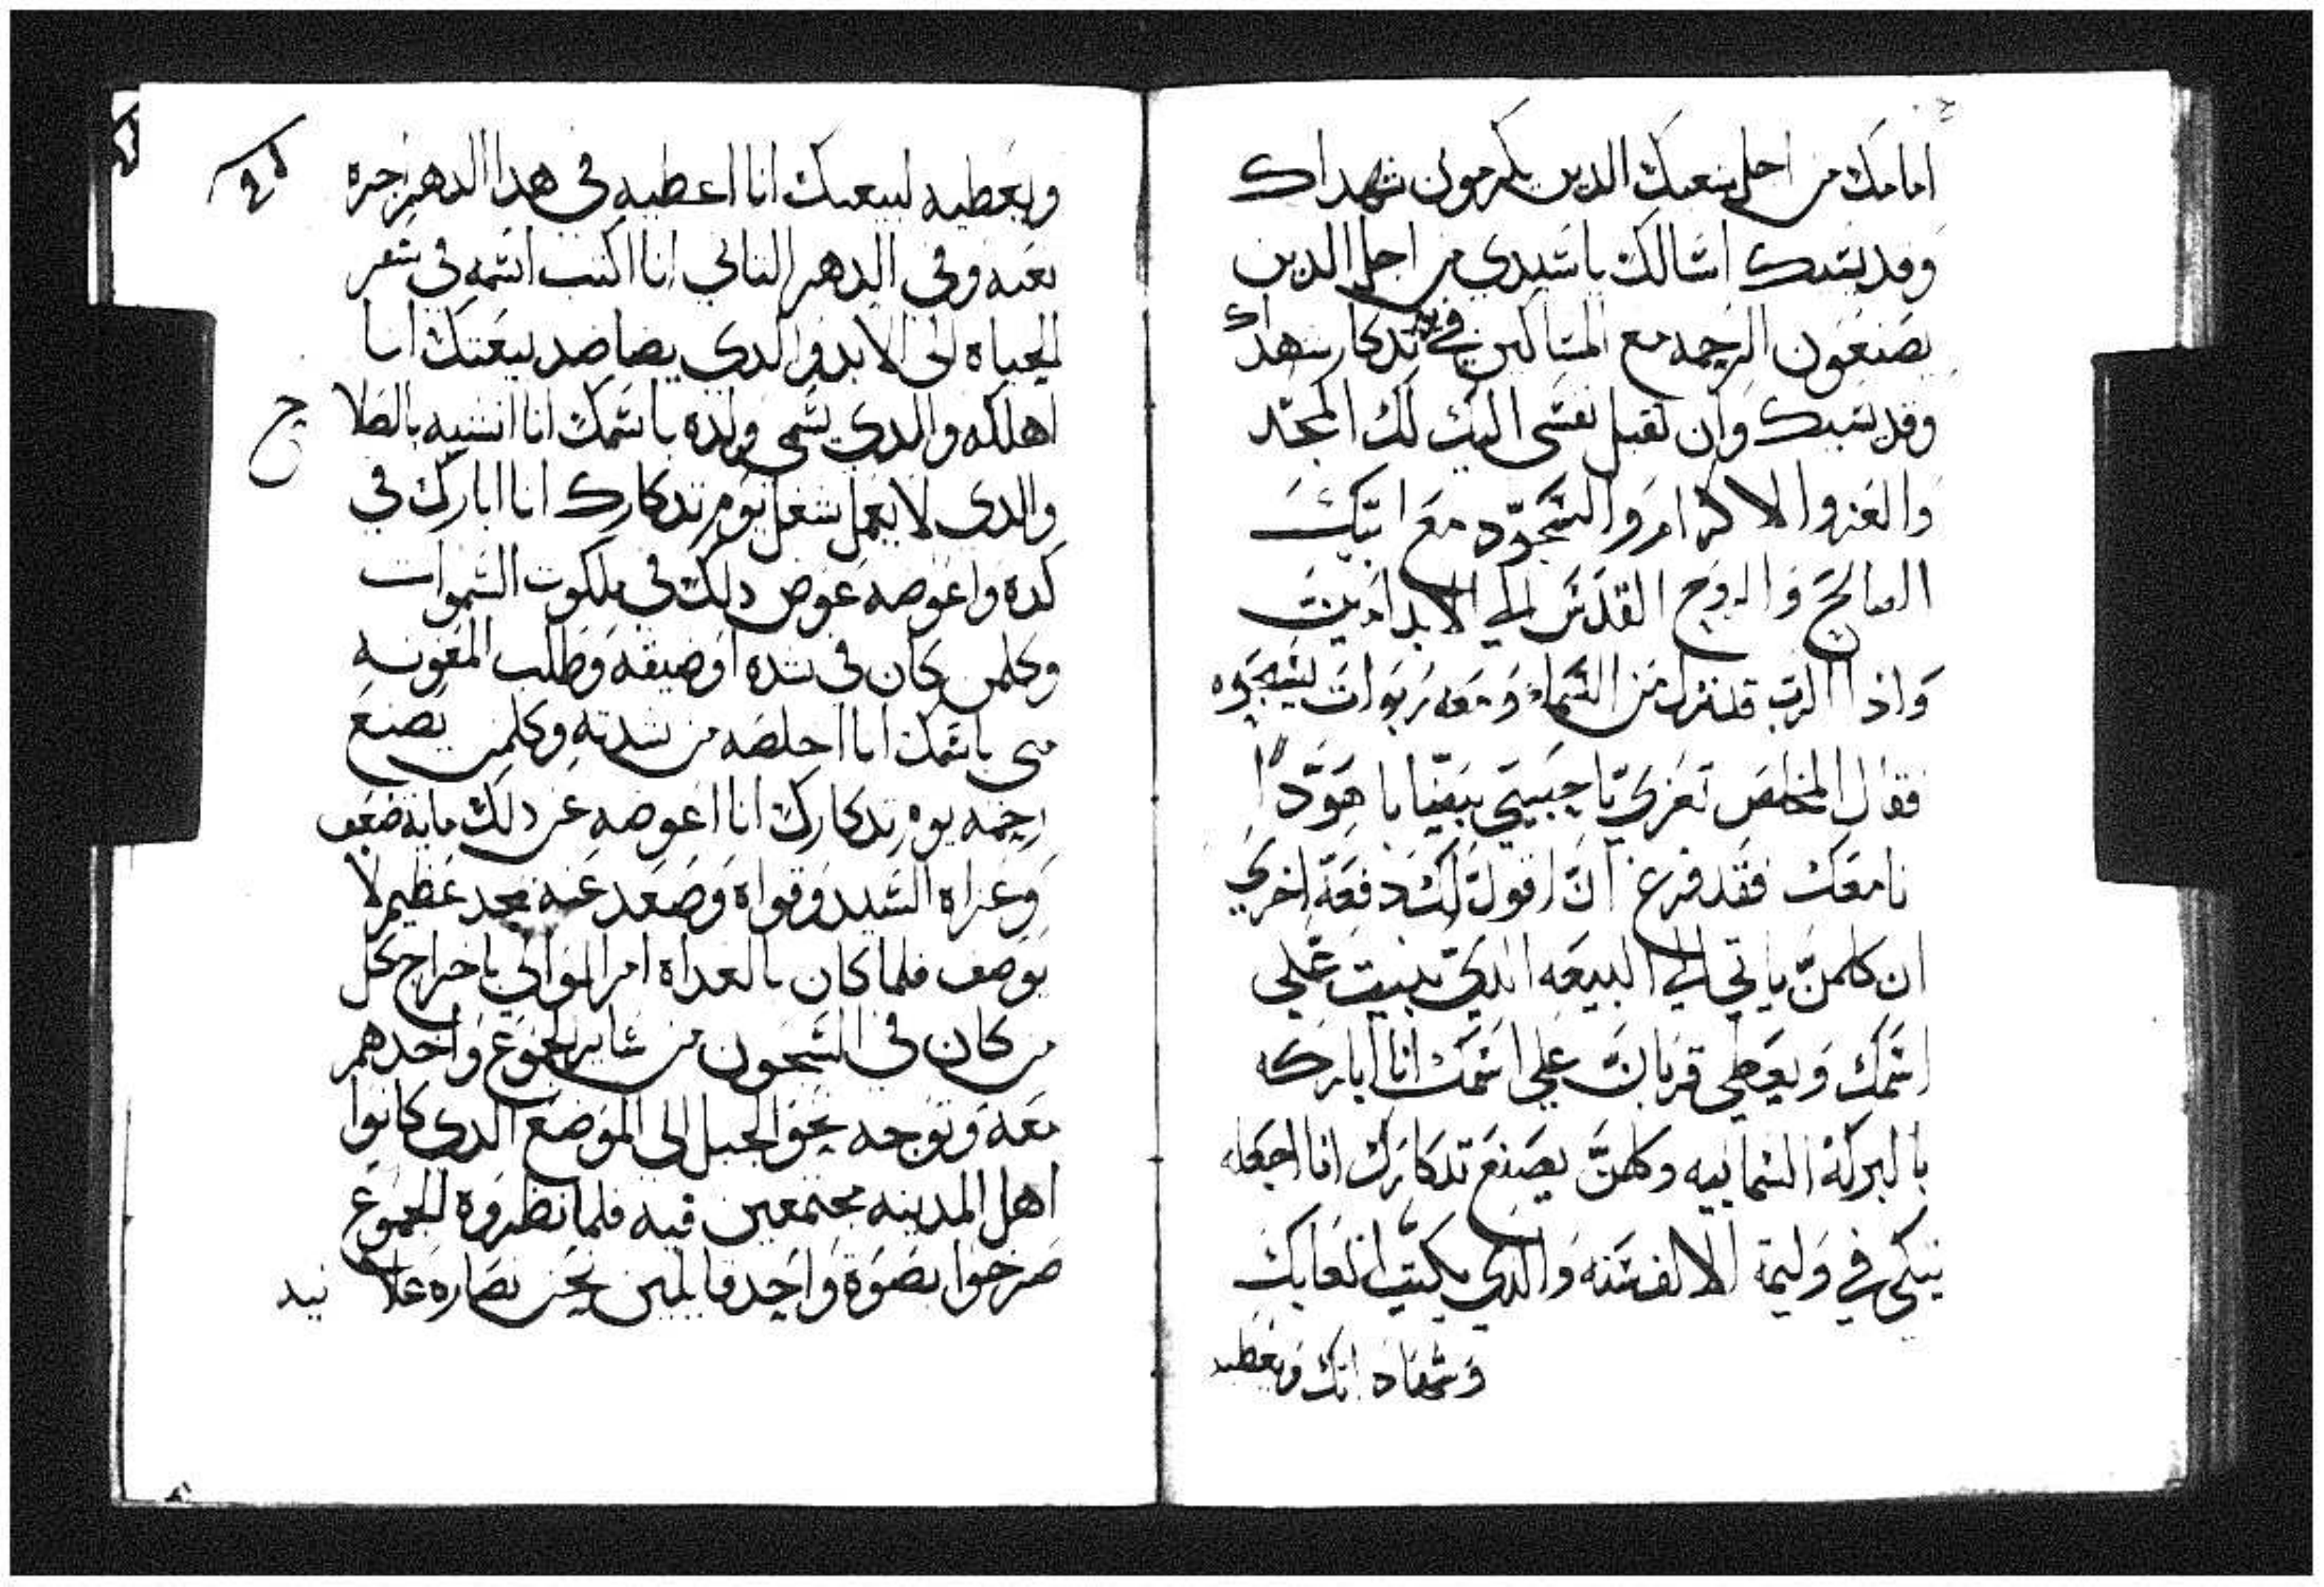 امامك من اجل شعبك الدين يكرمون شهداك
وقديسيك اسالك ياسيدي من اجل الدين
يصنعون الرحمه مع المساكين في تدكار شهداك
وقديسيك وان تقبل نفسى اليك لك المجد
والعز والاكرام والسجود مع ابيك
الصالح والروح القدس الي الابد امين
واذا الرب قد نزل من السماء ومعه ربوات يسبحوه
فقال المخلص تعزي يا حبيبي بيفا يا هودا
نا معك فقد فرغ ان اقول لك دفعة اخري
ان كلمن ياتي الي البيعه الدي بنيت علي
اسمك ويعطي قربان علي اسمك انا اباركه
بالبركة السماييه وكلمن يصنع تدكارك انا اجعله
يتكى في وليمة الالف سنه والدي يكتب اتعابك
وشهاداتك ويعطيه
ويعطيه لبيعتك انا اعطيه في هدا الدهر اجرة
تعبه وفي الدهر التاني انا اكتب اسمه في سفر
الحياه الى الابد والدي يضاضد بيعتك انا
اهلكه والدي يسمى ولده باسمك انا انشيه بالصلا
ح
والدي لا يعمل شغل يوم تدكارك انا ابارك في
كده واعوضه عوض دلك في ملكوت السموات
وكلمن كان في شده او ضيقه وطلب المعونه
منى باسمك انا اخلصه من شدته وكلمن يصنع
رحمه يوم تدكارك انا اعوضه عن دلك مايه ضعف
وعزاه السيد وقواه وصعد عنه بمجد عظيم لا
يوصف فلما كان بالغداه امر الوالي باخراج كل
من كان في السجون من ساير الجموع واخدهم
معه وتوجه نحو الجبل الى الموضع الدي كانوا
اهل المدينه مجتمعين فيه فلما نظروه الجموع
صرخوا بصوة واحد قايلين نحن نصاره علا نيه